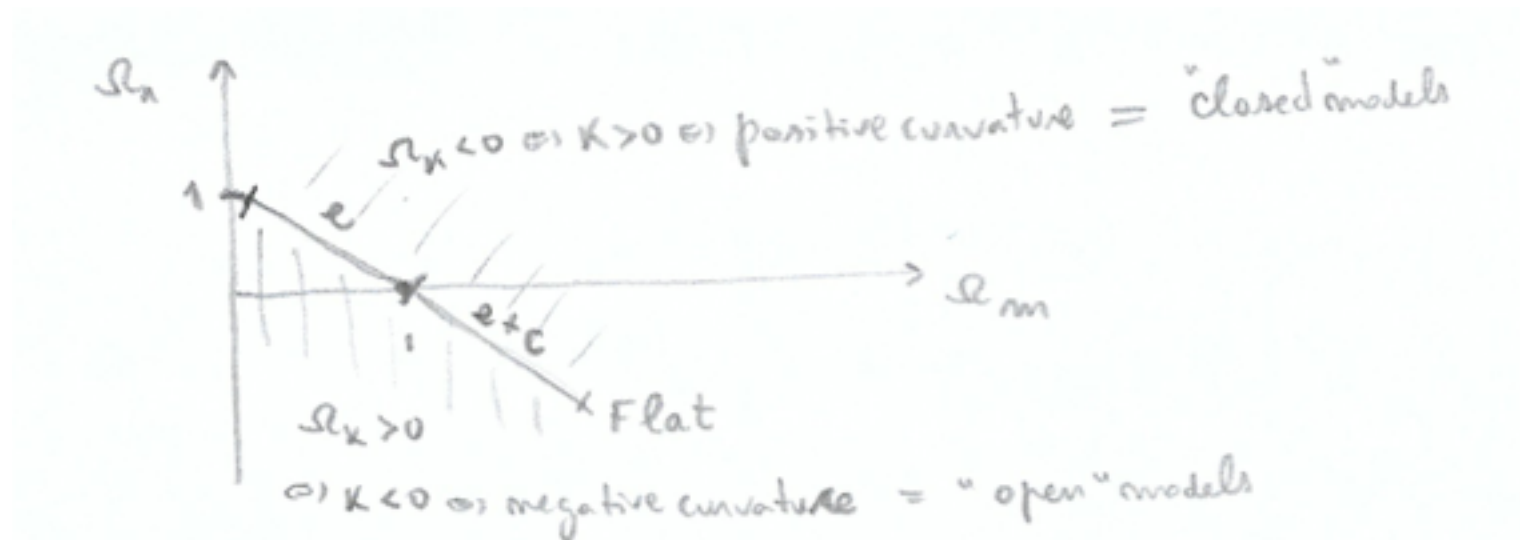 Ω_Λ
Ω_K < 0 ⇔ K > 0 ⇔ positive curvature = "closed" models
1
e
Ω_m
e + c
1
Flat
Ω_K > 0
⇔ K < 0 ⇔ negative curvature = "open" models